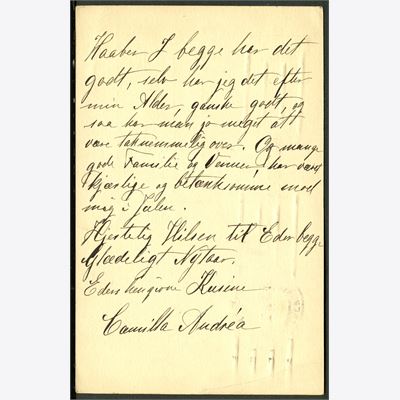 Haaber I begge har det
godt, selv har jeg det efter
min Alder, ganske godt, og
saa har man jo meget at
være taknemmelig over. Og mange
gode Familie og Venner, har været
kjærlige og betænksomme mod
mig i Julen.
Hjertelig Hilsen til Eder begge
Glædeligt Nytaar.
Eders hengivne Kusine
Camilla Andréa